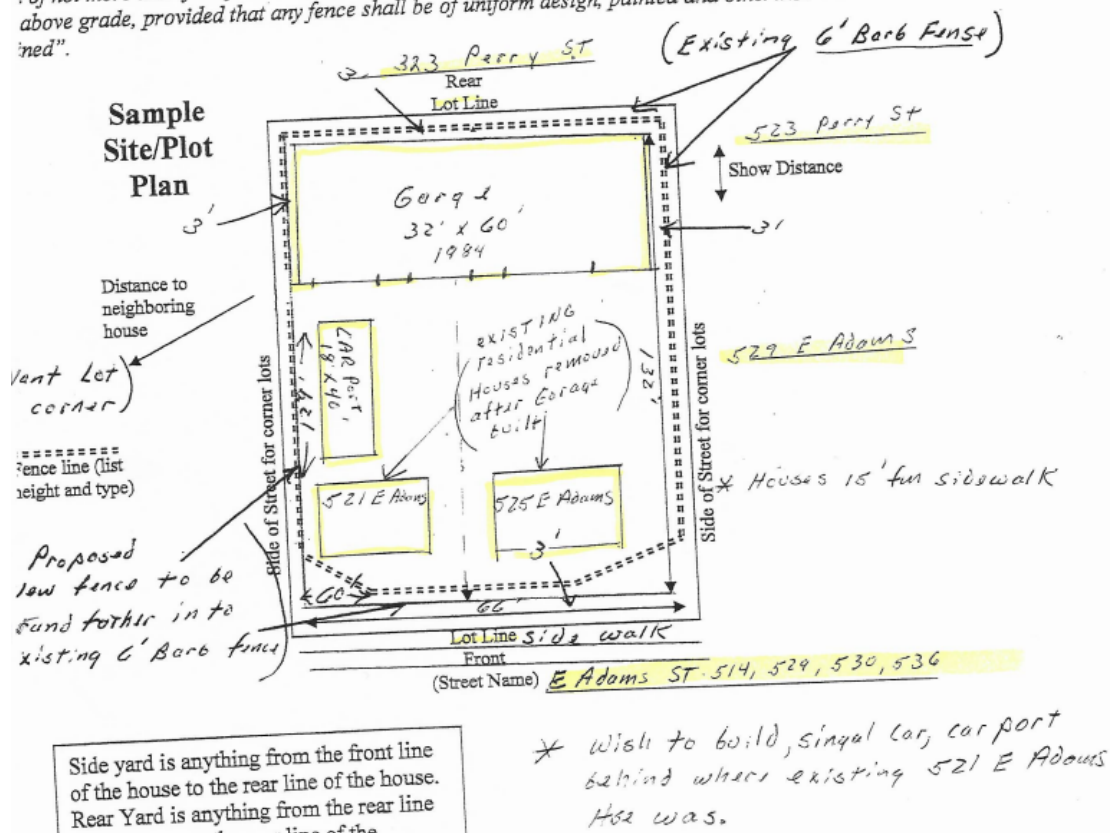 above grade, provided that any fence shall be of uniform design, painted and
ined”.
(Existing 6' Barb Fense)
3. 323 Perry ST
Rear
Lot Line
Sample
Site/Plot
Plan
523 Perry St
Show Distance
3'
Garge
32' x 60'
1984
3'
Distance to
neighboring
house
Lot
corner)
Side of Street for corner lots
CAR Port,
18' x 40'
(existing
residential
Houses removed
after Garage
built)
132'
Side of Street for corner lots
529 E Adams
Fence line (list
height and type)
521 E Adams
525 E Adams
* Houses 15' fun sidewalk
3'
Proposed
to be
in to
xisting 6' Barb fence)
60'
66'
Lot Line side walk
Front
(Street Name) E Adams ST. 514, 529, 530, 536
Side yard is anything from the front line
of the house to the rear line of the house.
Rear Yard is anything from the rear line
line of the
* Wish to build, singal car, car port
behind where existing 521 E Adams
Hse was.